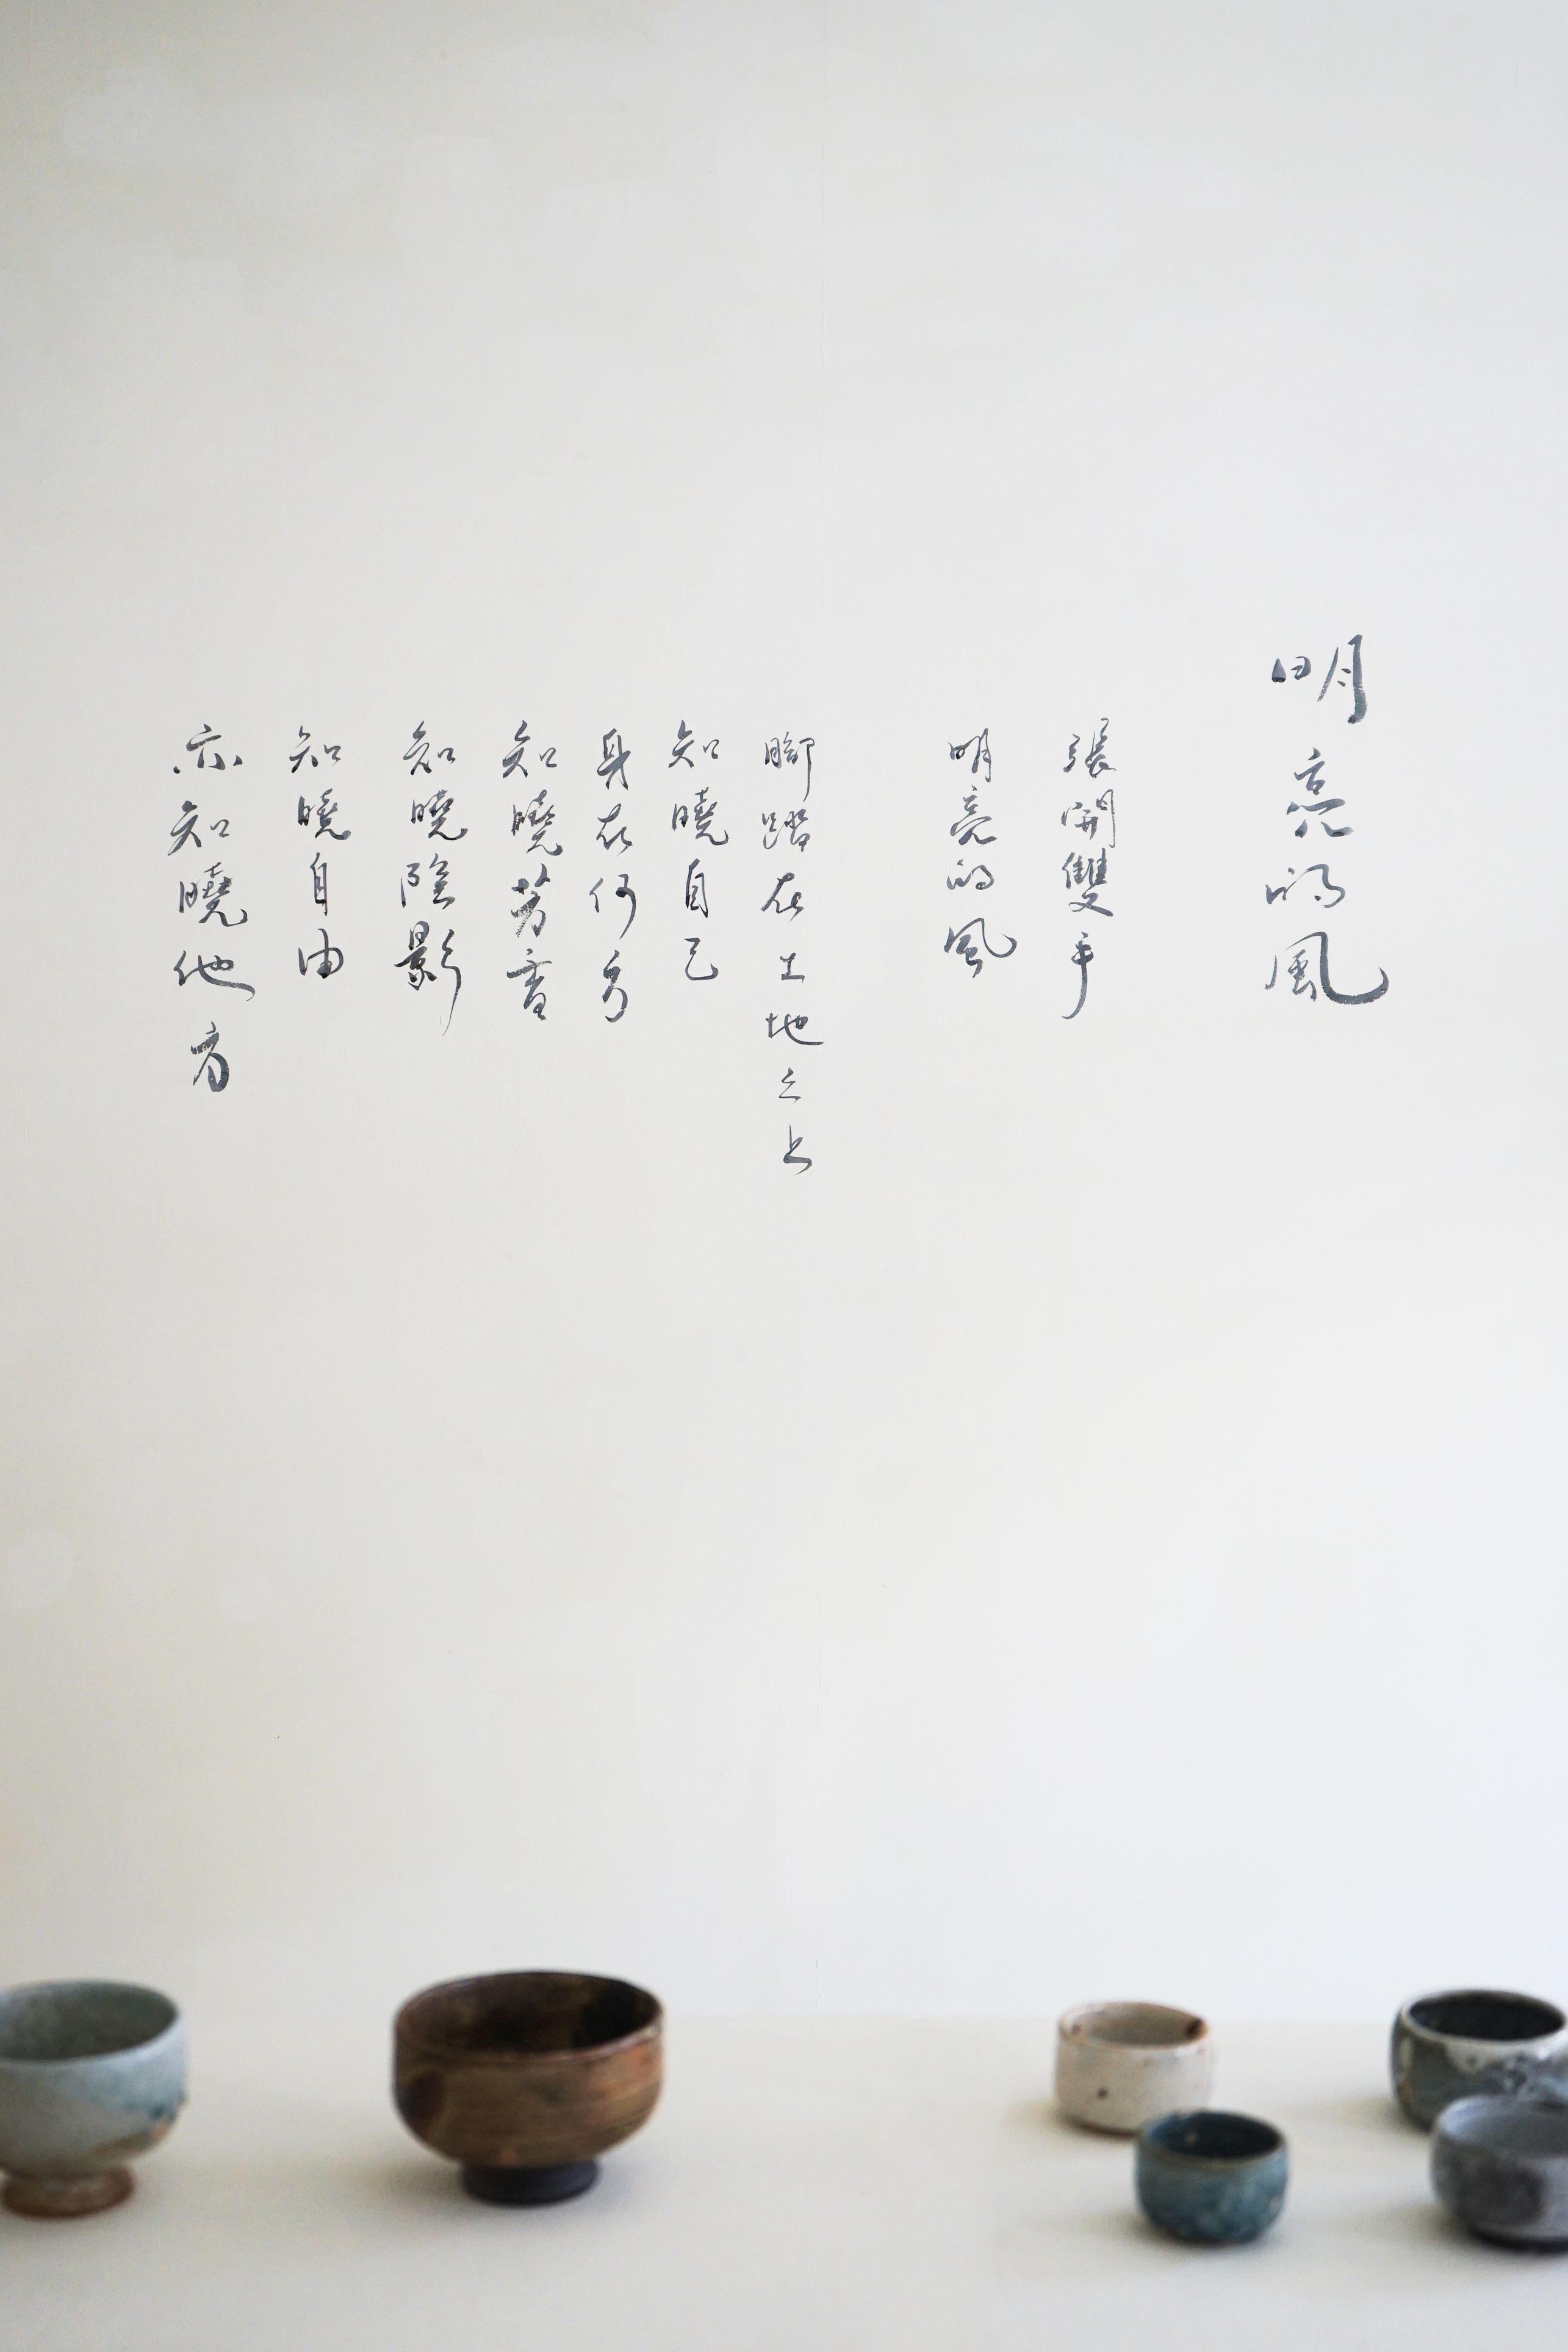 明亮的風
張開雙手
明亮的風
腳踏在土地之上
知曉自己
身在何方
知曉芳香
知曉陰影
知曉自由
亦知曉他方